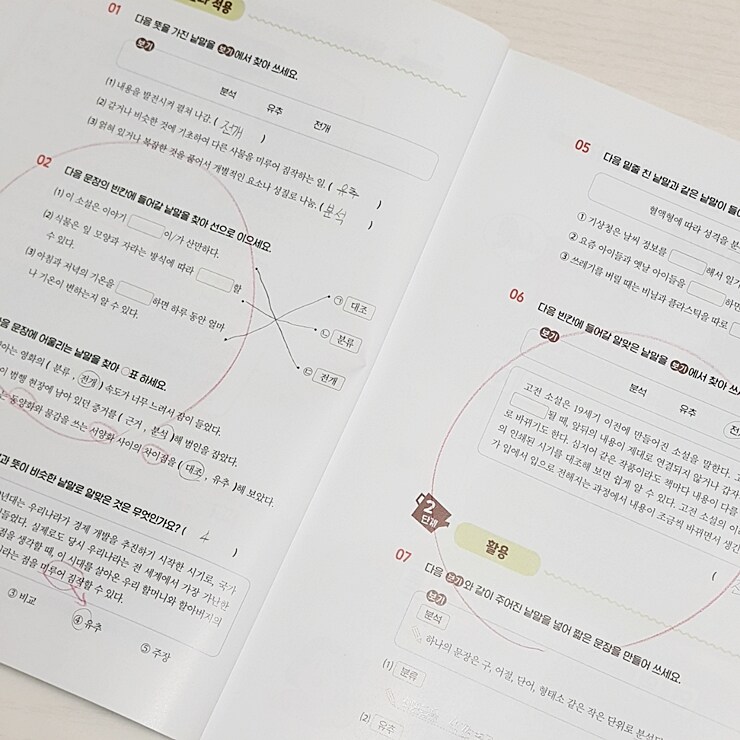 적용
01
다음 뜻을 가진 낱말을 보기에서 찾아 쓰세요.
보기
분석 유추 전개
(1) 내용을 발전시켜 펼쳐 나감. ( 전개 )
(2) 같거나 비슷한 것에 기초하여 다른 사물을 미루어 짐작하는 일. ( 유추 )
(3) 얽혀 있거나 복잡한 것을 풀어서 개별적인 요소나 성질로 나눔. ( 분석 )
02
다음 문장의 빈칸에 들어갈 낱말을 찾아 선으로 이으세요.
(1) 이 소설은 이야기 이/가 산만하다.
(2) 식물은 잎 모양과 자라는 방식에 따라 할
수 있다.
(3) 아침과 저녁의 기온을 하면 하루 동안 얼마
나 기온이 변하는지 알 수 있다.
㉠ 대조
㉡ 분류
㉢ 전개
문장에 어울리는 낱말을 찾아 ○표 하세요.
영화의 ( 분류 , 전개 ) 속도가 너무 느려서 잠이 들었다.
범행 현장에 남아 있던 증거를 ( 근거 , 분석 )해 범인을 잡았다.
동양화와 물감을 쓰는 서양화 사이의 차이점을 ( 대조 , 유추 )해 보았다.
뜻이 비슷한 낱말로 알맞은 것은 무엇인가요? ( 4 )
우리나라가 경제 개발을 추진하기 시작한 시기로, 국가
실제로도 당시 우리나라는 전 세계에서 가장 가난한
점을 생각할 때, 이 시대를 살아온 우리 할머니와 할아버지의
라는 점을 미루어 짐작할 수 있다.
③ 비교
④ 유추
⑤ 주장
05
다음 밑줄 친 낱말과 같은 낱말이
혈액형에 따라 성격을
① 기상청은 날씨 정보를 해서
② 요즘 아이들과 옛날 아이들을 하면
③ 쓰레기를 버릴 때는 비닐과 플라스틱을 따로
06
다음 빈칸에 들어갈 알맞은 낱말을 보기에서 찾아
보기
분석 유추
고전 소설은 19세기 이전에 만들어진 소설을 말한다.
될 때, 앞뒤의 내용이 제대로 연결되지 않거나
로 바뀌기도 한다. 심지어 같은 작품이라도 책마다 내용이 다를
의 인쇄된 시기를 대조해 보면 쉽게 알 수 있다. 고전 소설의
가 입에서 입으로 전해지는 과정에서 내용이 조금씩 바뀌면서
2
단계
활용
07
다음 보기와 같이 주어진 낱말을 넣어 짧은 문장을 만들어 쓰세요.
보기
분석
하나의 문장은 구, 어절, 단어, 형태소 같은 작은 단위로
(1) 분류
(2) 유추